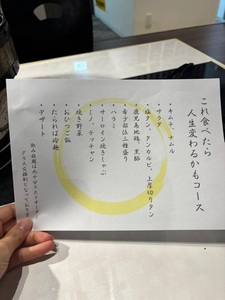 これ食べたら
人生変わるかもコース
・キムチ、ナムル
・サラダ
・塩タン、タンカルビ、上厚切りタン
・鹿児島地鶏、黒豚
・希少部位三種盛り
・ハラミ
・サーロイン焼きしゃぶ
・ミノ、テッチャン
・焼き野菜
・おひつご飯
・たられば冷麺
・デザート